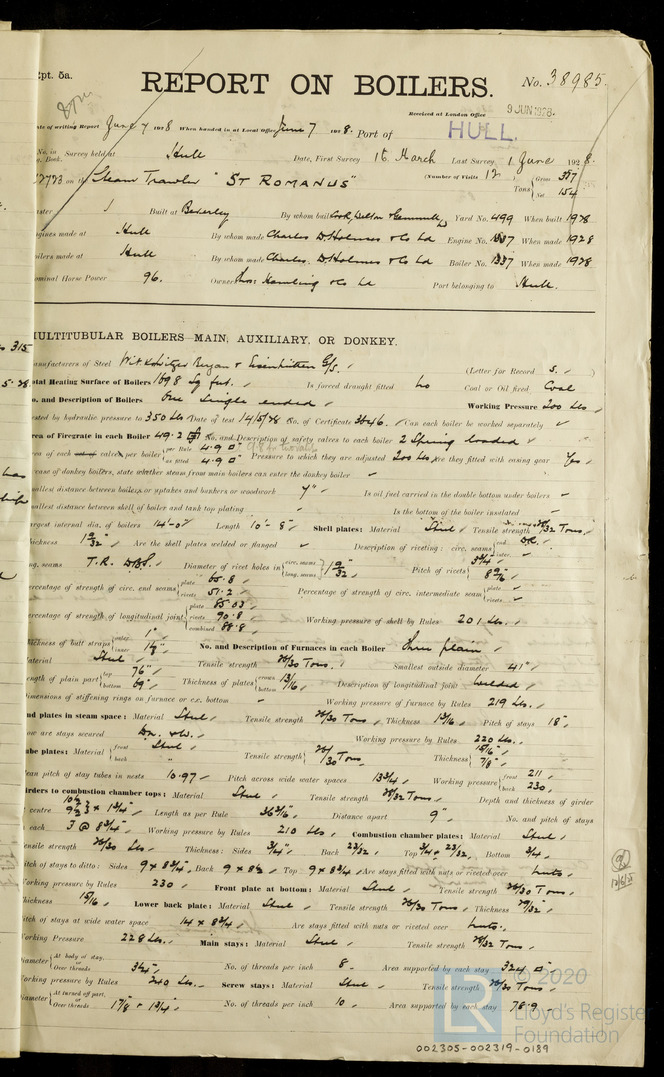 Rpt. 5a.
REPORT ON BOILERS.
No. 38985.
Received at London Office 9 JUN 1928
Date of writing Report June 7 1928 When handed in at Local Office June 7 1928. Port of HULL.
No. in Survey held at Hull Date, First Survey 16 March Last Survey 1 June 1928
on the Steam Trawler "ST ROMANUS" (Number of Visits 12) Gross 357
Tons Net 154
Master Built at Beverley By whom built Cook, Welton & Gemmell Ld Yard No. 499 When built 1928
Engines made at Hull By whom made Charles D. Holmes & Co Ld Engine No. 1337 When made 1928
Boilers made at Hull By whom made Charles. D. Holmes & Co Ld Boiler No. 1337 When made 1928
Nominal Horse Power 96. Owners Thos: Hamling & Co Ld Port belonging to Hull.
MULTITUBULAR BOILERS MAIN, AUXILIARY, OR DONKEY.
Manufacturers of Steel (Letter for Record S. )
Total Heating Surface of Boilers 1698 Sq feet. Is forced draught fitted No Coal or Oil fired Coal
No. and Description of Boilers One Single ended Working Pressure 200 Lbs.
Tested by hydraulic pressure to 350 Lbs Date of test 14/5/28 No. of Certificate 3646. Can each boiler be worked separately
Area of Firegrate in each Boiler 49.2 No. and Description of safety valves to each boiler 2 Spring loaded
Area of each set of valves per boiler per Rule 4.90 as fitted 4.90 Pressure to which they are adjusted 200 Lbs Are they fitted with easing gear Yes
In case of donkey boilers, state whether steam from main boilers can enter the donkey boiler
Smallest distance between boilers or uptakes and bunkers or woodwork 7" Is oil fuel carried in the double bottom under boilers
Smallest distance between shell of boiler and tank top plating Is the bottom of the boiler insulated
Largest internal dia. of boilers 14'-0" Length 10'-8" Shell plates: Material Steel Tensile strength 28/32 Tons.
Thickness 1 9/32" Are the shell plates welded or flanged Description of riveting: circ. seams end DR. inter.
long. seams T.R. D.B.S. Diameter of rivet holes in circ. seams long. seams 1 9/32 Pitch of rivets 3 3/4 8 9/16
Percentage of strength of circ. end seams plate 65.8 rivets 51.2 Percentage of strength of circ. intermediate seam plate rivets
Percentage of strength of longitudinal joint plate 85.03 rivets 90.8 combined 88.8 Working pressure of shell by Rules 201 Lbs.
Thickness of butt straps outer 1" inner 1 1/8" No. and Description of Furnaces in each Boiler Three plain
Material Steel Tensile strength 26/30 Tons. Smallest outside diameter 41"
Length of plain part top 76" bottom 69" Thickness of plates crown bottom 13/16 Description of longitudinal joint Welded
Dimensions of stiffening rings on furnace or c.c. bottom Working pressure of furnace by Rules 219 Lbs.
End plates in steam space: Material Steel Tensile strength 26/30 Tons Thickness 1 3/16 Pitch of stays 18"
How are stays secured Dn. & W. Working pressure by Rules 220 Lbs.
Tube plates: Material front Steel back " Tensile strength 26/30 Tons Thickness 15/16" 7/8"
Mean pitch of stay tubes in nests 10.97 Pitch across wide water spaces 13 3/4 Working pressure front 211 back 230
Girders to combustion chamber tops: Material Steel Tensile strength 28/32 Tons Depth and thickness of girder
at centre 10 1/2 9 1/2 x 1 3/4 Length as per Rule 36 3/16" Distance apart 9" No. and pitch of stays
in each 3 @ 8 3/4 Working pressure by Rules 210 Lbs Combustion chamber plates: Material Steel
Tensile strength 26/30 Thickness: Sides 3/4" Back 23/32 Top 3/4 & 23/32 Bottom 3/4
Pitch of stays to ditto: Sides 9 x 8 3/4 Back 9 x 8 1/2 Top 9 x 8 3/4 Are stays fitted with nuts or riveted over Nuts
Working pressure by Rules 230 Front plate at bottom: Material Steel Tensile strength 26/30 Tons
Thickness 15/16 Lower back plate: Material Steel Tensile strength 26/30 Tons Thickness 29/32"
Pitch of stays at wide water space 14 x 8 3/4 Are stays fitted with nuts or riveted over nuts.
Working Pressure 228 Lbs. Main stays: Material Steel Tensile strength 28/32 Tons
Diameter At body of stay, or Over threads 3 1/4" No. of threads per inch 8 Area supported by each stay 324
Working pressure by Rules 240 Lbs. Screw stays: Material Steel Tensile strength 26/30 Tons
Diameter At turned off part, or Over threads 1 7/8 & 1 3/4 No. of threads per inch 10 Area supported by each stay 78.9
© 2020
LR Lloyd's Register Foundation
002305-002319-0189